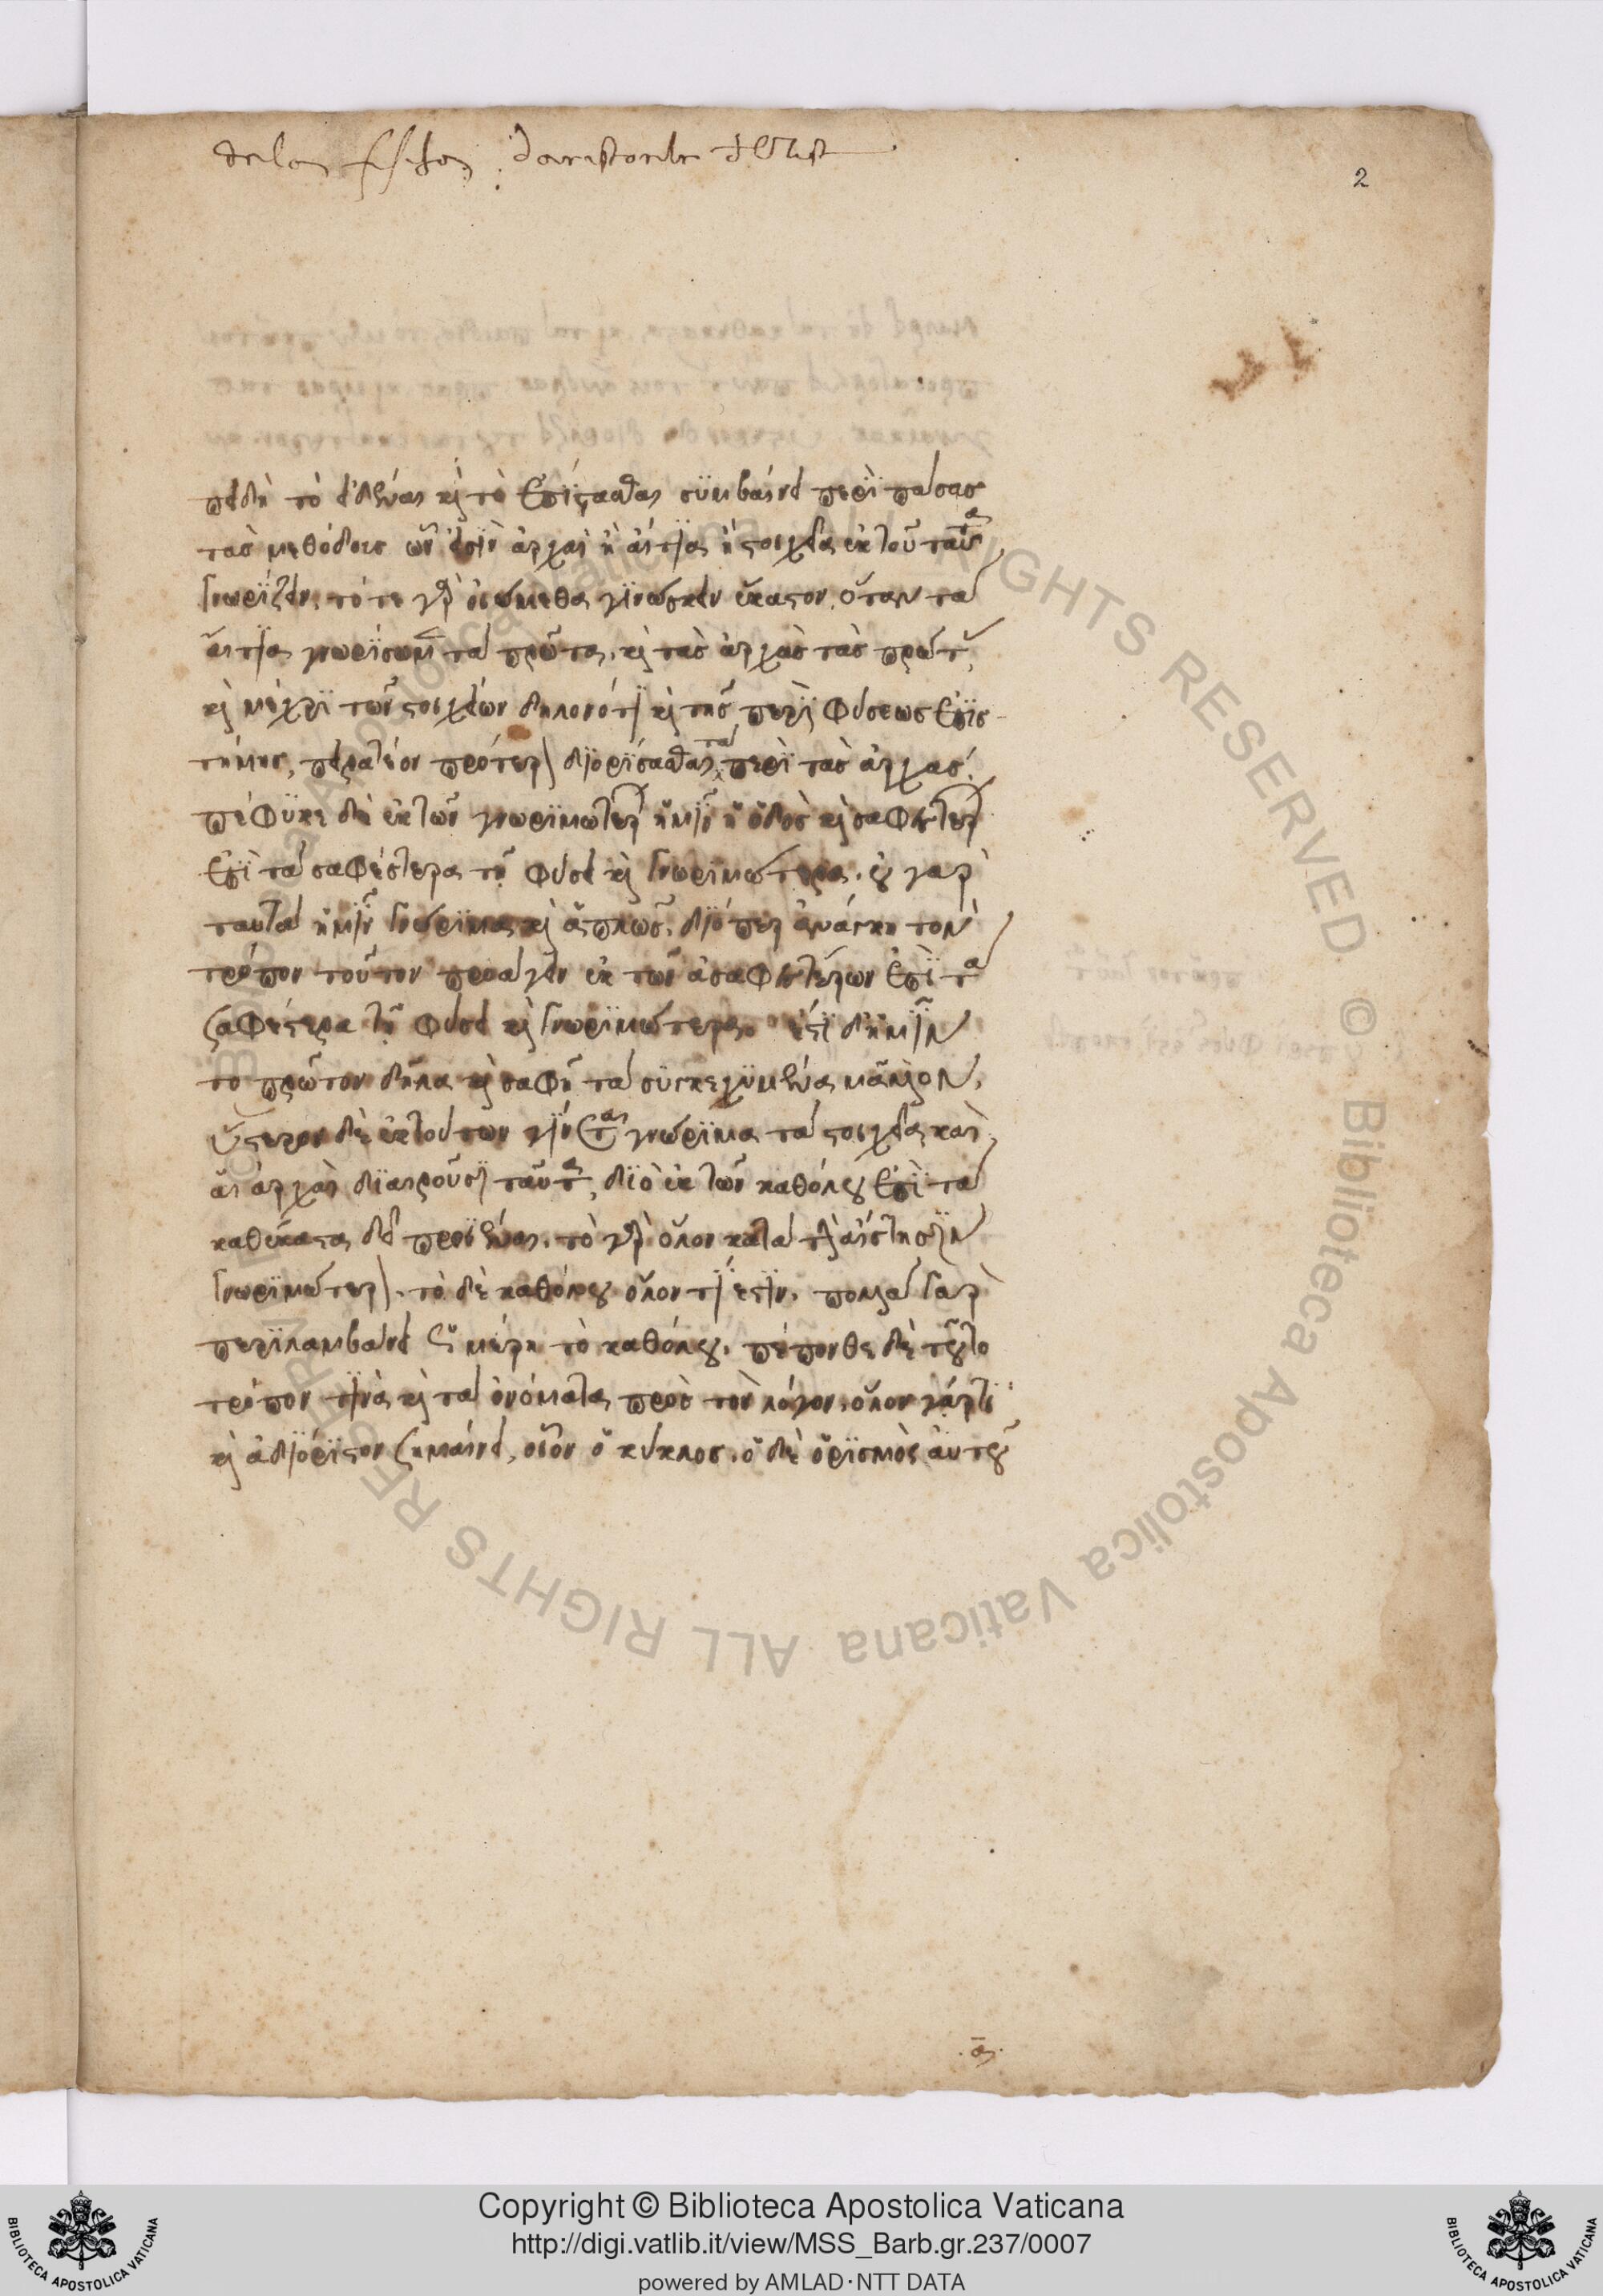 2
πειδὴ τὸ εἰδέναι καὶ τὸ ἐπίστασθαι συμβαίνει περὶ πάσας
τὰς μεθόδους ὧν εἰσὶν ἀρχαὶ ἢ αἴτια ἢ στοιχεῖα ἐκ τοῦ ταῦτα
γνωρίζειν, τότε γὰρ οἰόμεθα γινώσκειν ἕκαστον, ὅταν τὰ
αἴτια γνωρίσωμεν τὰ πρῶτα, καὶ τὰς ἀρχὰς τὰς πρώτας,
καὶ μέχρι τῶν στοιχείων δηλονότι καὶ τῆς περὶ φύσεως ἐπισ
τήμης, πειρατέον πρότερον διορίσασθαι τὰ περὶ τὰς ἀρχάς.
πέφυκε δὲ ἐκ τῶν γνωριμωτέρων ἡμῖν ἡ ὁδὸς καὶ σαφεστέρων
ἐπὶ τὰ σαφέστερα τῇ φύσει καὶ γνωριμώτερα. οὐ γὰρ
ταυτὰ ἡμῖν γνώριμα καὶ ἁπλῶς. διόπερ ἀνάγκη τὸν
τρόπον τοῦτον προάγειν ἐκ τῶν ἀσαφεστέρων ἐπὶ τὰ
σαφέστερα τῇ φύσει καὶ γνωριμώτερα. ἔστι δ' ἡμῖν
το πρῶτον δῆλα καὶ σαφῆ τὰ συγκεχυμένα μᾶλλον,
ὕστερον δὲ ἐκ τούτων γίνεται γνώριμα τὰ στοιχεῖα καὶ
αἱ ἀρχαὶ διαιροῦσι ταῦτα, διὸ ἐκ τῶν καθόλου ἐπὶ τὰ
καθέκαστα δεῖ προϊέναι. τὸ γὰρ ὅλον κατὰ τὴν αἴσθησιν
γνωριμώτερον. τὸ δὲ καθόλου ὅλον τί ἐστιν. πολλὰ γὰρ
περιλαμβάνει ὡς μέρη τὸ καθόλου. πέπονθε δὲ τοῦτο
τρόπον τινὰ καὶ τὰ ὀνόματα πρὸς τὸν λόγον. ὅλον γάρ τι
καὶ ἀδιόριστον σημαίνει, οἷον ὁ κύκλος. ὁ δὲ ὁρισμὸς αὐτοῦ
.ᾱ.
© Biblioteca Apostolica Vaticana ALL RIGHTS RESERVED © Biblioteca Apostolica Vaticana ALL RIGHTS RESERVED
BIBLIOTECA APOSTOLICA VATICANA
Copyright © Biblioteca Apostolica Vaticana
http://digi.vatlib.it/view/MSS_Barb.gr.237/0007
powered by AMLAD·NTT DATA
BIBLIOTECA APOSTOLICA VATICANA